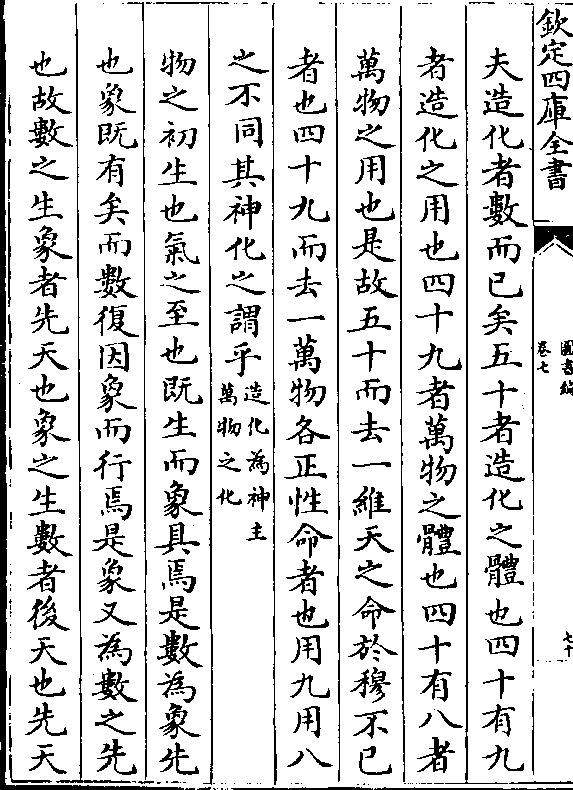 欽定四庫全書
圖書編
卷七
七十
夫造化者數而已矣五十者造化之體也四十有九
者造化之用也四十九者萬物之體也四十有八者
萬物之用也是故五十而去一維天之命於穆不已
者也四十九而去一萬物各正性命者也用九用八
之不同其神化之謂乎造化為神主萬物之化
物之初生也氣之至也既生而象具焉是數為象先
也象既有矣而數復因象而行焉是象又為數之先
也故數之生象者先天也象之生數者後天也先天